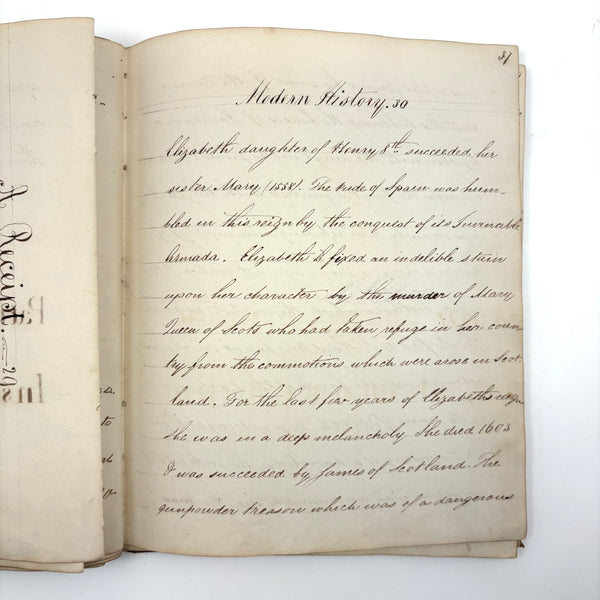 37
Modern History. 30
Elizabeth daughter of Henry 8th succeeded her
sister Mary (1558). The pride of Spain was hum-
bled in this reign by the conquest of its
Armada. Elizabeth fixed an indelible stain
upon her character by the murder of Mary
Queen of Scots who had taken refuge in her coun
try from the commotions which were arose in Scot-
land. For the last few years of Elizabeths reign
She was in a deep melancholy She died 1603
& was succeeded by James of Scotland. The
gunpowder treason which was of a dangerous
A Receipt. 29
Ins
to